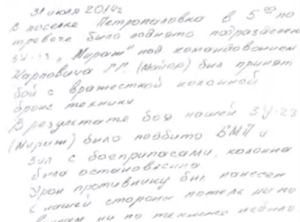 31 июля 2014г
В поселке Петропаловка в 5 00 по
тревоге было поднято подразделен
ЗУ-23 „Мираж" под командованием
Карповича Г.Г. (Майор) был принят
бой с вражеской колонной
бронетехники
В результате боя нашей ЗУ-23
(Мираж) было подбито БМП и
Зил с боеприпасами, колонна
была остановлена
Урон противнику был нанесен
с нашей стороны потерь
ни по технике